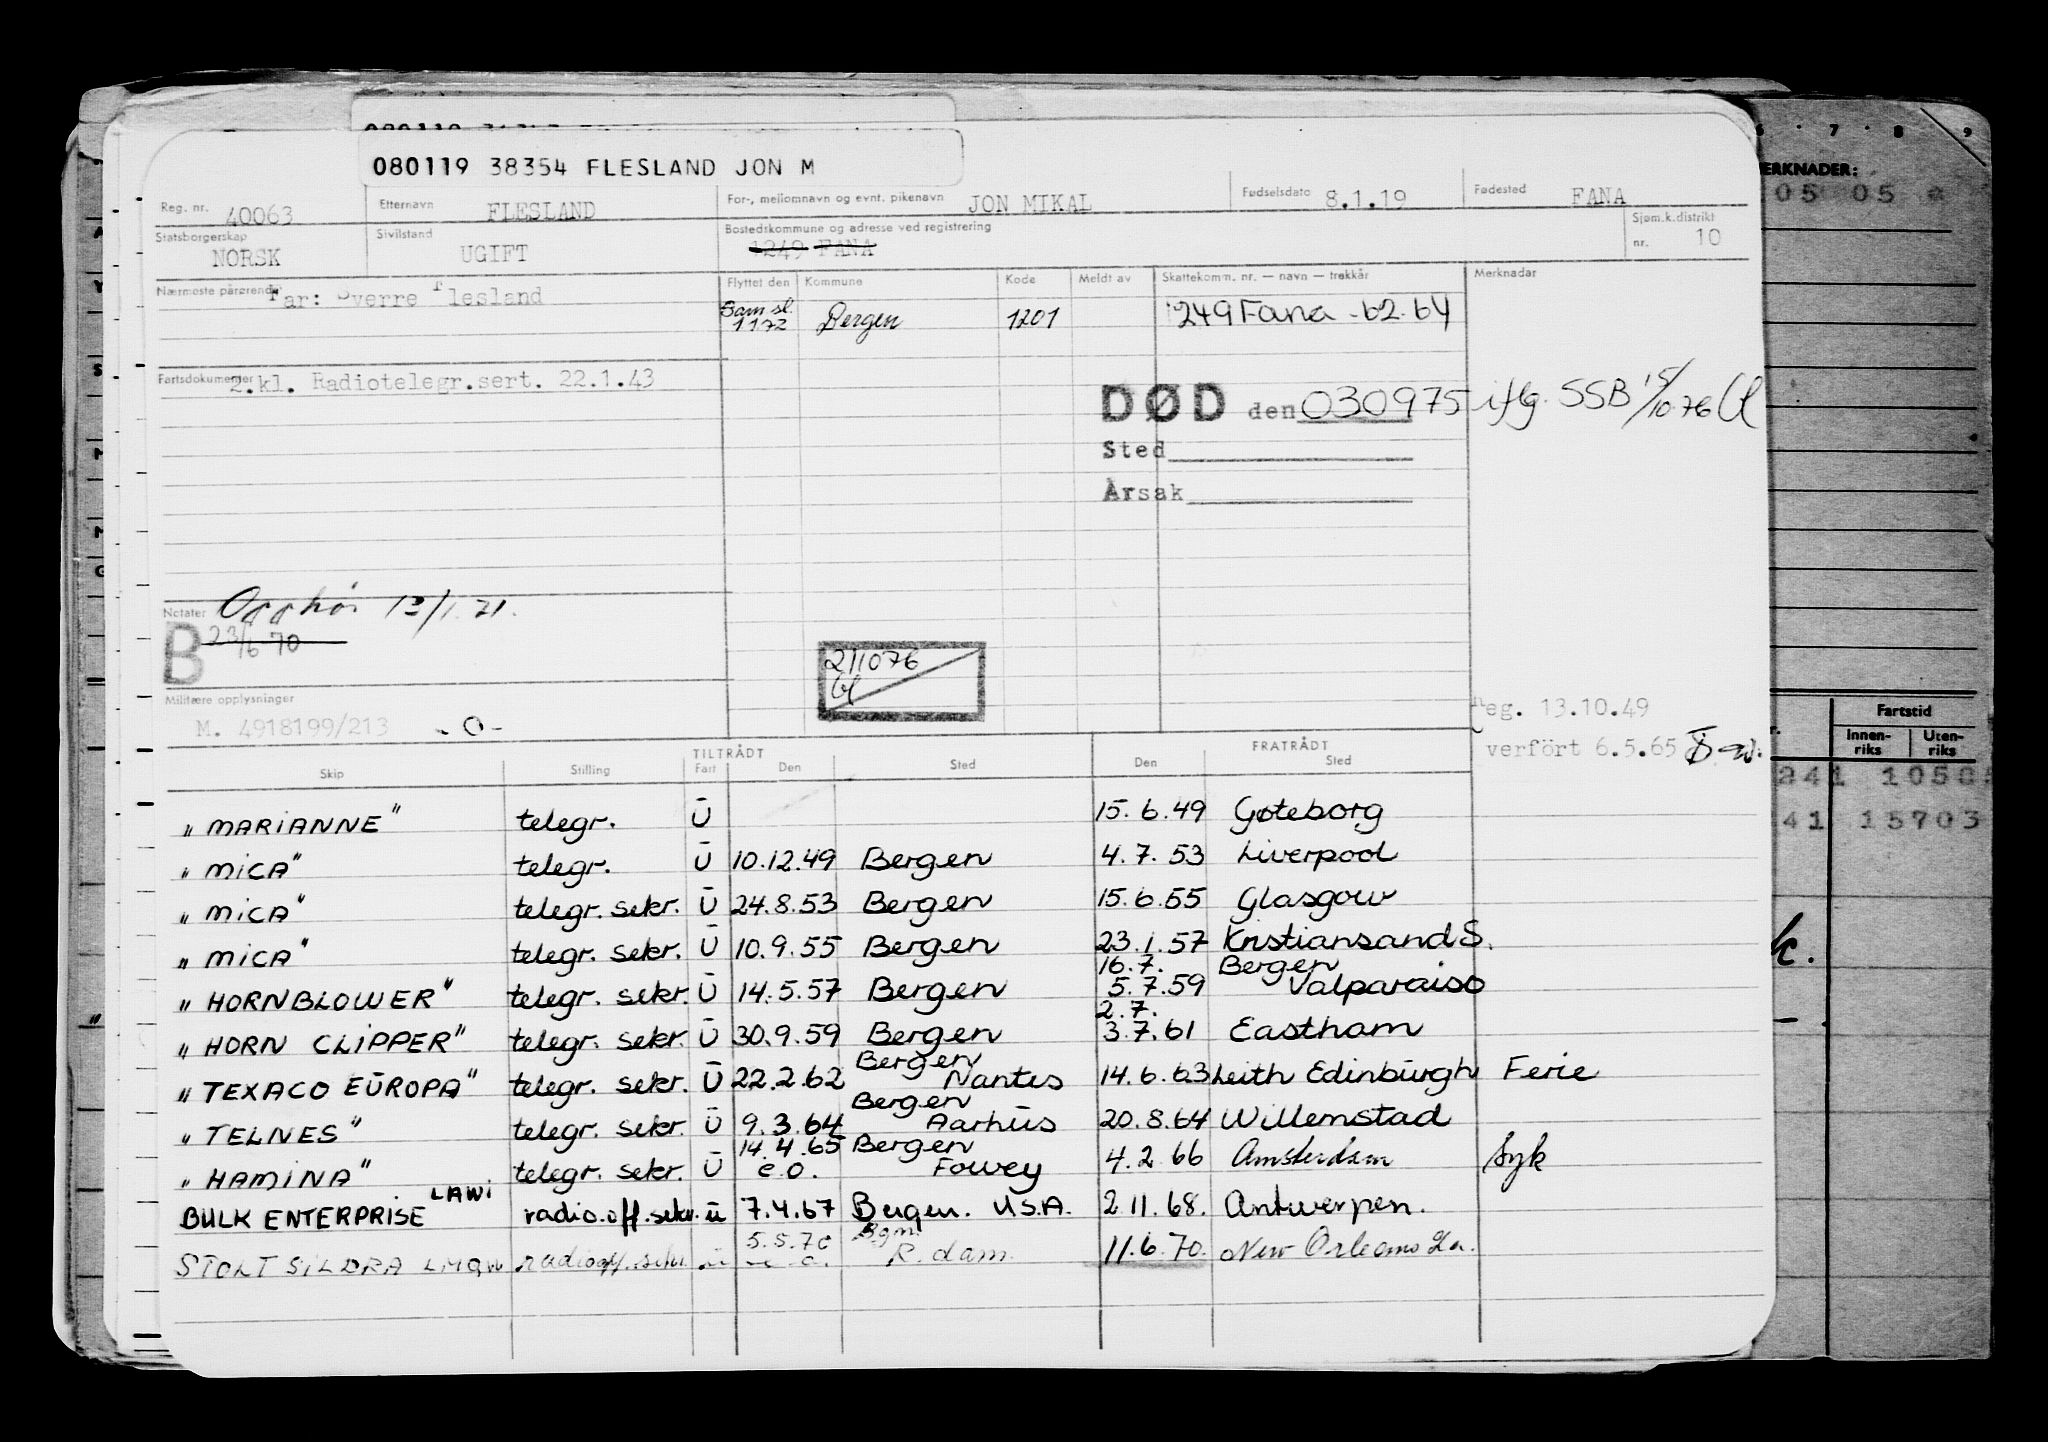 080119 38354 FLESLAND JON M
Reg. nr. 40063 Etternavn FLESLAND For-, mellomnavn og evnt. pikenavn JON MIKAL Fødselsdato 8.1.19 Fødested FANA
Statsborgerskap NORSK Sivilstand UGIFT Bostedskommune og adresse ved registrering 1249 FANA Sjøm.k.distrikt nr. 10
Nærmeste pårørende Far: Sverre Flesland
Flyttet den Kommune Kode Meldt av Skattekomm. nr. — navn — trekkår Merknader
Sam sl. 1172 Bergen 1201 1249 Fana - 62. 64
Fartsdokumenter 2.kl. Radiotelegr.sert. 22.1.43
DØD den 030975 iflg. SSB 15/10.76
Sted
Årsak
Notater Opphör 12/1.71.
B 23/6 70
211076
Militære opplysninger
M. 4918199/213 - 0 -
Reg. 13.10.49
verfört 6.5.65
TILTRÅDT FRATRÅDT
Skip Stilling Fart Den Sted Den Sted
"MARIANNE" telegr. U 15.6.49 Gøteborg
"MICA" telegr. U 10.12.49 Bergen 4.7.53 Liverpool
"MICA" telegr. sekr. U 24.8.53 Bergen 15.6.55 Glasgow
"MICA" telegr. sekr. U 10.9.55 Bergen 23.1.57 Kristiansand S.
16.7. Bergen
"HORNBLOWER" telegr. sekr U 14.5.57 Bergen 5.7.59 Valparaiso
2.7.
"HORN CLIPPER" telegr. sekr. U 30.9.59 Bergen 3.7.61 Eastham
Bergen
"TEXACO EUROPA" telegr. sekr. U 22.2.62 Nantes 14.6.63 Leith Edinburgh Ferie
Bergen
"TELNES" telegr. sekr. U 9.3.64 Aarhus 20.8.64 Willemstad
14.4.65 Bergen
"HAMINA" telegr. sekr. U e.o. Fowey 4.2.66 Amsterdam Syk
BULK ENTERPRISE LAWI radio.off.sekr. u 7.4.67 Bergen. U.S.A. 2.11.68. Antwerpen.
5.5.70 Bgm.
STOLT SILDRA radiooff.sekr. u R.dam. 11.6.70. New Orleans La.
6 7 8 9
MERKNADER:
05 05
Fartstid
Innen-riks Uten-riks
241 1050
41 15703
k.